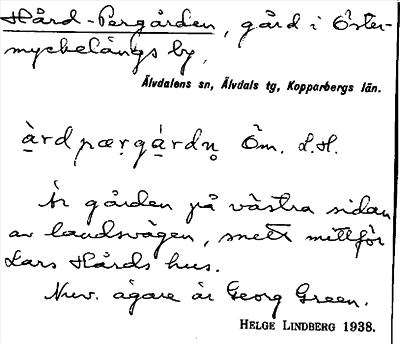 Hård-Pergården, gård i Öster-
myckelängs by,
Älvdalens sn, Älvdals tg, Kopparbergs län.
àrdpærgárdn̥ Öm. L.H.
Är gården på västra sidan
av landsvägen, snett mittför
Lars Hårds hus.
Nuv. ägare är Georg Green.
HELGE LINDBERG 1938.